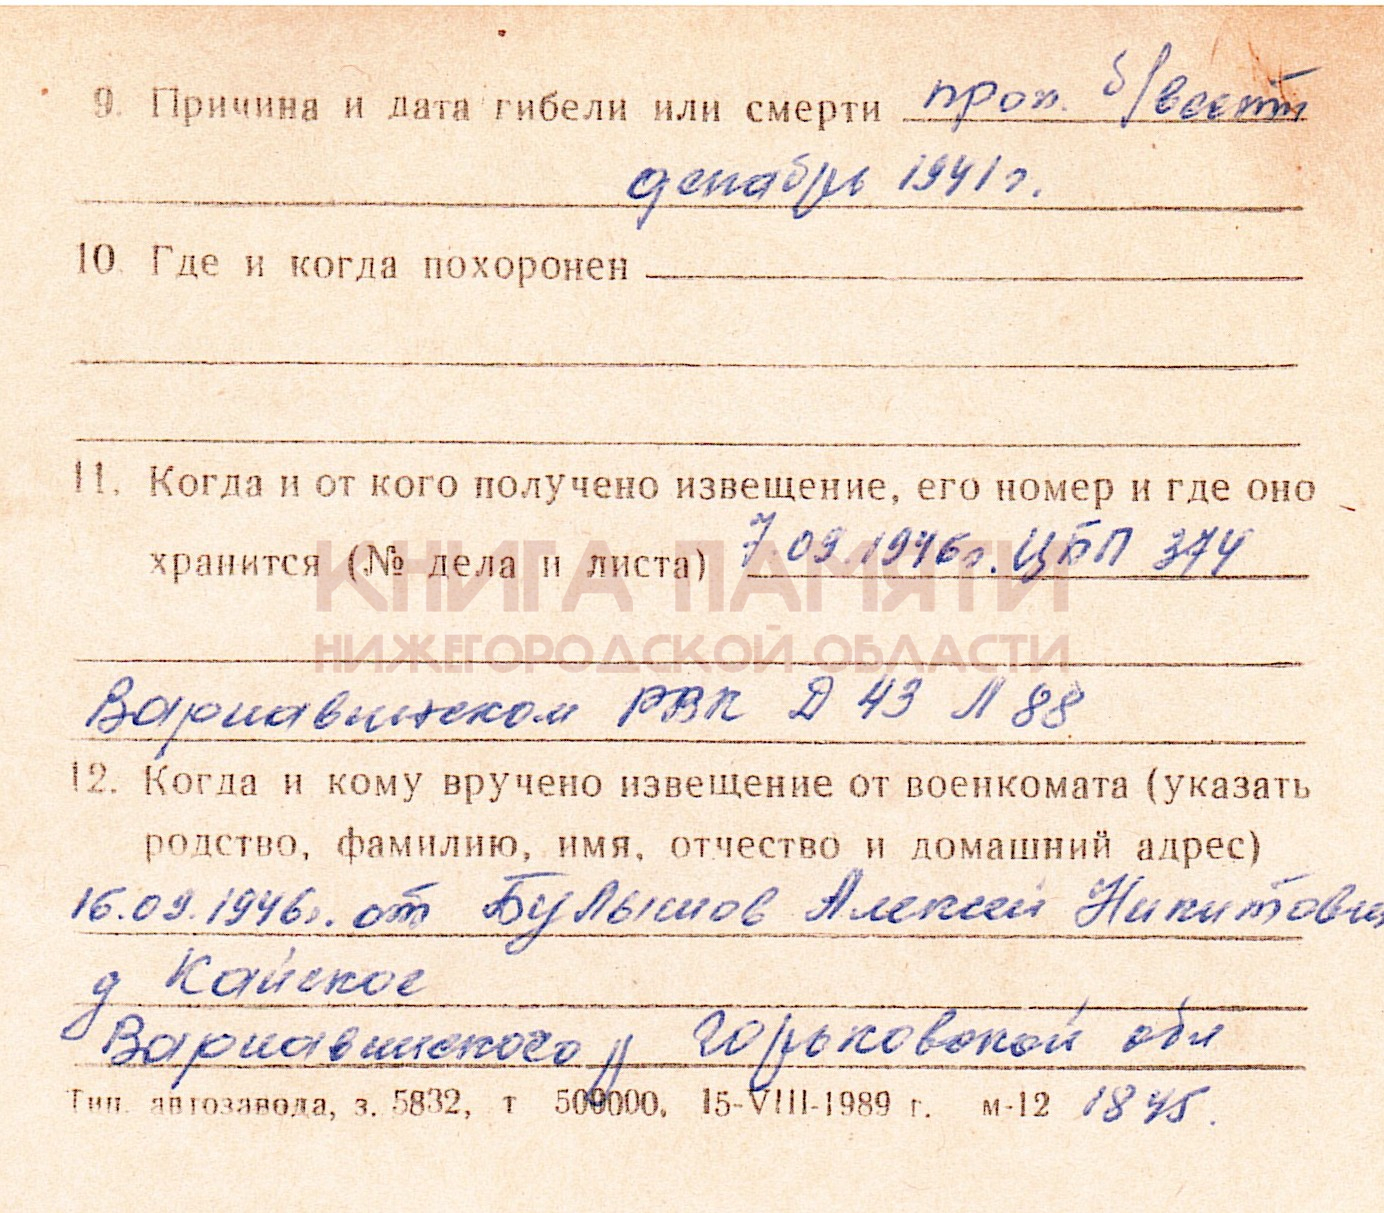 9. Причина и дата гибели или смерти проп. б/вести
декабрь 1941 г.
10. Где и когда похоронен
11. Когда и от кого получено извещение, его номер и где оно
хранится (№ дела и листа) 7.09.1946г. ЦБП 374
КНИГА ПАМЯТИ
НИЖЕГОРОДСКОЙ ОБЛАСТИ
Варнавинском РВК Д 43 Л 88
12. Когда и кому вручено извещение от военкомата (указать
родство, фамилию, имя, отчество и домашний адрес)
16.09.1946г. от Булышов Алексей Никитович
д Кайское
Варнавинского р Горьковской обл
Тип. автозавода, з. 5832, т 500000, 15-VIII-1989 г. м-12 1845.